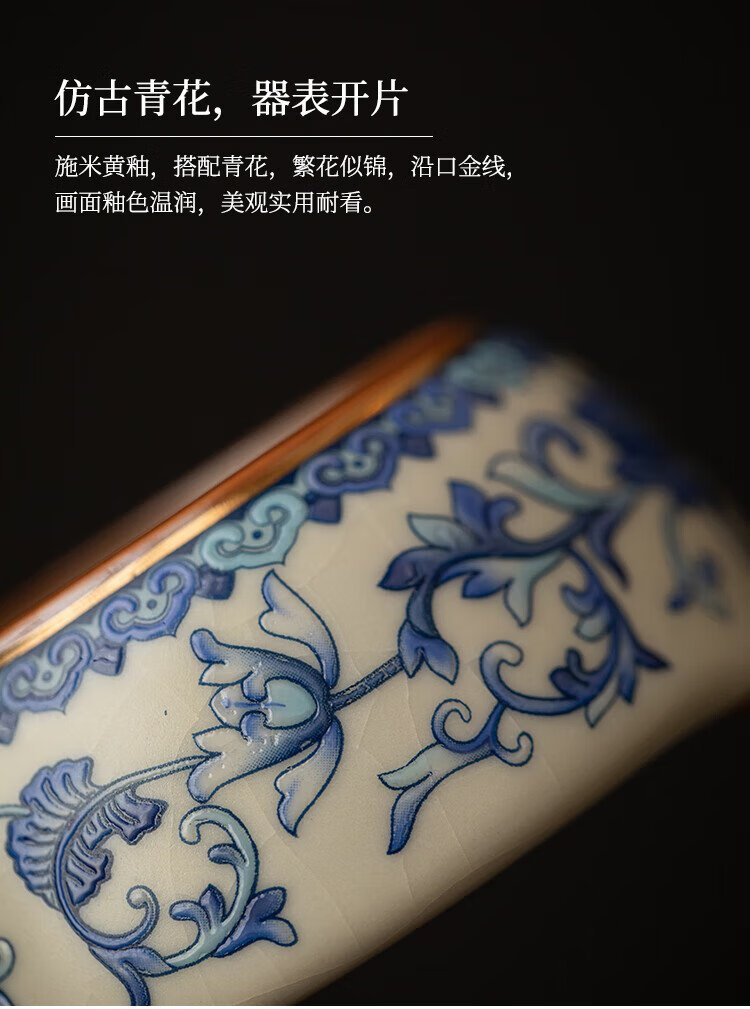 仿古青花，器表开片
施米黄釉，搭配青花，繁花似锦，沿口金线，
画面釉色温润，美观实用耐看。